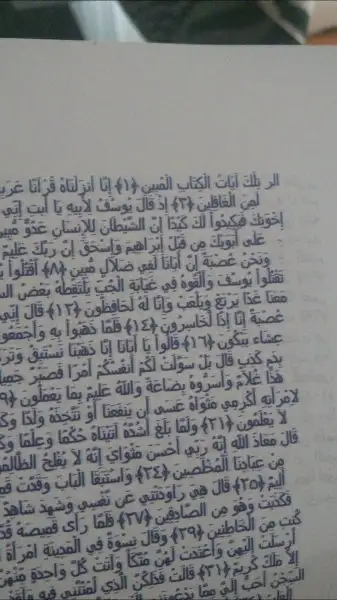 الر تِلْكَ آيَاتُ الْكِتَابِ الْمُبِينِ ﴿١﴾ إِنَّا أَنزَلْنَاهُ قُرْآنًا
لَمِنَ الْغَافِلِينَ ﴿٣﴾ إِذْ قَالَ يُوسُفُ لِأَبِيهِ يَا أَبَتِ إِنِّي
إِخْوَتِكَ فَيَكِيدُوا لَكَ كَيْدًا إِنَّ الشَّيْطَانَ لِلْإِنسَانِ عَدُوٌّ
عَلَى أَبَوَيْكَ مِن قَبْلُ إِبْرَاهِيمَ وَإِسْحَقَ إِنَّ رَبَّكَ عَلِيمٌ
وَنَحْنُ عُصْبَةٌ إِنَّ أَبَانَا لَفِي ضَلَالٍ مُّبِينٍ ﴿٨﴾ اقْتُلُوا
تَقْتُلُوا يُوسُفَ وَأَلْقُوهُ فِي غَيَابَةِ الْجُبِّ يَلْتَقِطْهُ بَعْضُ
مَعَنَا غَدًا يَرْتَعْ وَيَلْعَبْ وَإِنَّا لَهُ لَحَافِظُونَ ﴿١٢﴾ قَالَ إِنِّي
عُصْبَةٌ إِنَّا إِذًا لَّخَاسِرُونَ ﴿١٤﴾ فَلَمَّا ذَهَبُوا بِهِ وَأَجْمَعُوا
عِشَاءً يَبْكُونَ ﴿١٦﴾ قَالُوا يَا أَبَانَا إِنَّا ذَهَبْنَا نَسْتَبِقُ
بِدَمٍ كَذِبٍ قَالَ بَلْ سَوَّلَتْ لَكُمْ أَنفُسُكُمْ أَمْرًا فَصَبْرٌ
هَذَا غُلَامٌ وَأَسَرُّوهُ بِضَاعَةً وَاللَّهُ عَلِيمٌ بِمَا يَعْمَلُونَ
لِامْرَأَتِهِ أَكْرِمِي مَثْوَاهُ عَسَى أَن يَنفَعَنَا أَوْ نَتَّخِذَهُ وَلَدًا
لَا يَعْلَمُونَ ﴿٢١﴾ وَلَمَّا بَلَغَ أَشُدَّهُ آتَيْنَاهُ حُكْمًا وَعِلْمًا
قَالَ مَعَاذَ اللَّهِ إِنَّهُ رَبِّي أَحْسَنَ مَثْوَايَ إِنَّهُ لَا يُفْلِحُ
مِنْ عِبَادِنَا الْمُخْلَصِينَ ﴿٢٤﴾ وَاسْتَبَقَا الْبَابَ وَقَدَّتْ
أَلِيمٌ ﴿٢٥﴾ قَالَ هِيَ رَاوَدَتْنِي عَن نَّفْسِي وَشَهِدَ شَاهِدٌ
فَكَذَبَتْ وَهُوَ مِنَ الصَّادِقِينَ ﴿٢٧﴾ فَلَمَّا رَأَى قَمِيصَهُ
كُنتِ مِنَ الْخَاطِئِينَ ﴿٢٩﴾ وَقَالَ نِسْوَةٌ فِي الْمَدِينَةِ امْرَأَةُ
أَرْسَلَتْ إِلَيْهِنَّ وَأَعْتَدَتْ لَهُنَّ مُتَّكَأً وَآتَتْ كُلَّ وَاحِدَةٍ مِّنْهُنَّ
إِلَّا مَلَكٌ كَرِيمٌ ﴿٣١﴾ قَالَتْ فَذَلِكُنَّ الَّذِي لُمْتُنَّنِي فِيهِ
السِّجْنُ أَحَبُّ إِلَيَّ مِمَّا